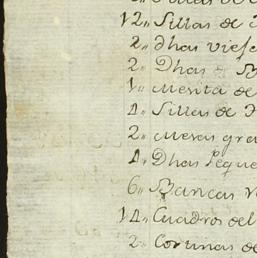 12,, Sillas de
2,, dhas viejas
2,, Dhas de
1,, mesita de
4,, Sillas de
2,, mesas gra
4,, Dhas Peque
6,, Bancas
14,, Cuadros del
2,, Cortinas de